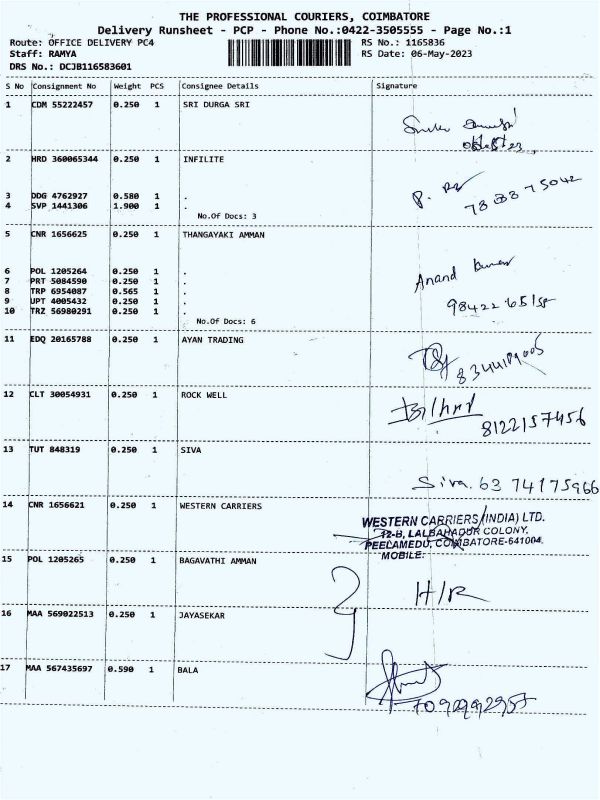 THE PROFESSIONAL COURIERS, COIMBATORE
Delivery Runsheet - PCP - Phone No.:0422-3505555 - Page No.:1
Route: OFFICE DELIVERY PC4 RS No.: 1165836
Staff: RAMYA RS Date: 06-May-2023
DRS No.: DCJB116583601
S No Consignment No Weight PCS Consignee Details Signature
1 CDM 55222457 0.250 1 SRI DURGA SRI
2 HRD 360065344 0.250 1 INFILITE
3 DDG 4762927 0.580 1 .
4 SVP 1441306 1.900 1 .
No.Of Docs: 3
5 CNR 1656625 0.250 1 THANGAYAKI AMMAN
6 POL 1205264 0.250 1 .
Anand Kumar
7 PRT 5084590 0.250 1 .
8 TRP 6954087 0.565 1 .
9 UPT 4005432 0.250 1 .
10 TRZ 56980291 0.250 1 .
No.Of Docs: 6
11 EDQ 20165788 0.250 1 AYAN TRADING
12 CLT 30054931 0.250 1 ROCK WELL
8122157456
13 TUT 848319 0.250 1 SIVA
Siva. 63 74175966
14 CNR 1656621 0.250 1 WESTERN CARRIERS
WESTERN CARRIERS (INDIA) LTD.
12-B, LALBAHADUR COLONY,
PEELAMEDU, COIMBATORE-641004.
MOBILE:
15 POL 1205265 0.250 1 BAGAVATHI AMMAN
H/R
16 MAA 569022513 0.250 1 JAYASEKAR
17 MAA 567435697 0.590 1 BALA